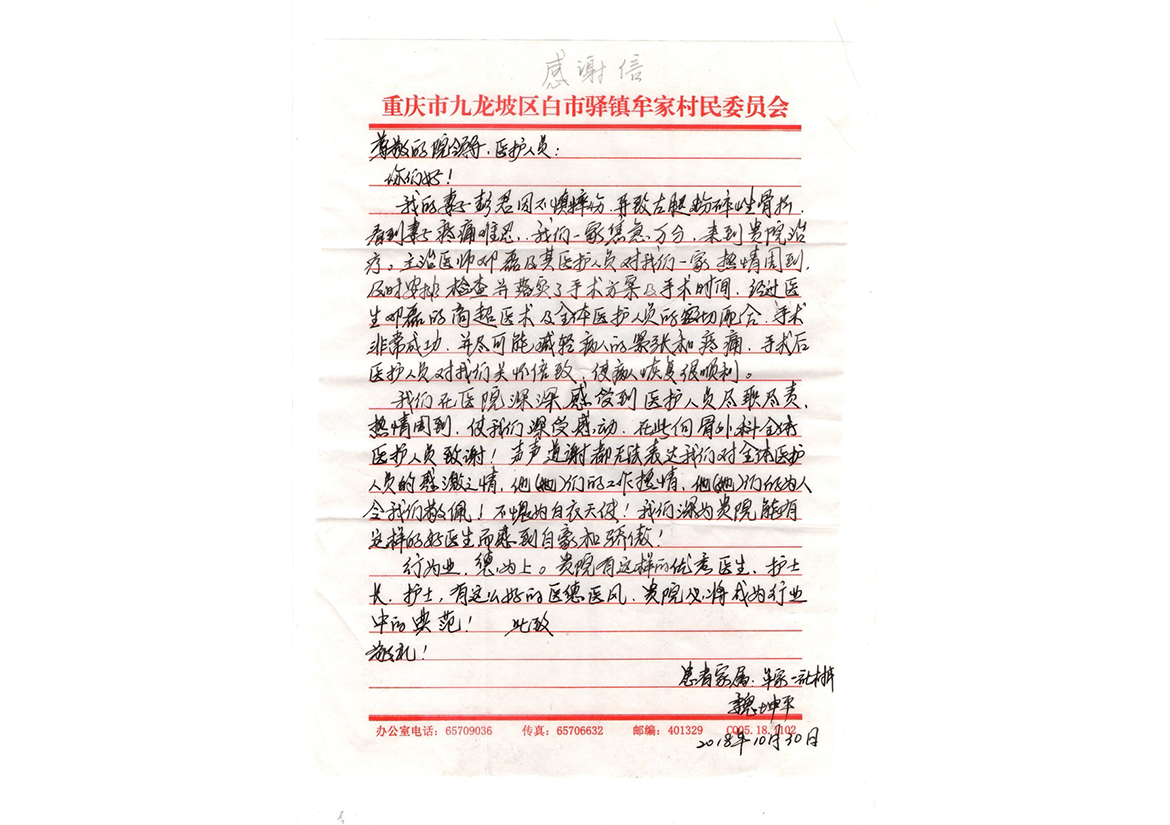 感谢信
重庆市九龙坡区白市驿镇牟家村民委员会
尊敬的院领导、医护人员：
你们好！
我的妻子彭君因不慎摔伤，导致左腿粉碎性骨折，
看到妻子疼痛难忍，我们一家焦急万分，来到贵院治
疗。主治医师邓磊及其医护人员对我们一家热情周到，
及时安排检查并落实了手术方案及手术时间，经过医
生邓磊的高超医术及全体医护人员的密切配合，手术
非常成功，并尽可能减轻病人的紧张和疼痛，手术后
医护人员对我们关怀倍致，使病人恢复很顺利。
我们在医院深深感受到医护人员尽职尽责，
热情周到，使我们深受感动，在此向骨外科全体
医护人员致谢！声声道谢都无法表达我们对全体医护
人员的感激之情，他(她)们的工作热情，他(她)们的为人
令我们敬佩！不愧为白衣天使！我们深为贵院能有
这样的好医生而感到自豪和骄傲！
行为业，德为上。贵院有这样的优秀医生、护士
长、护士，有这么好的医德医风，贵院必将成为行业
中的典范！ 此致
敬礼！
患者家属：牟家二社村民
魏坤平
办公室电话：65709036 传真：65706632 邮编：401329 C005.18.1102
2018年10月30日